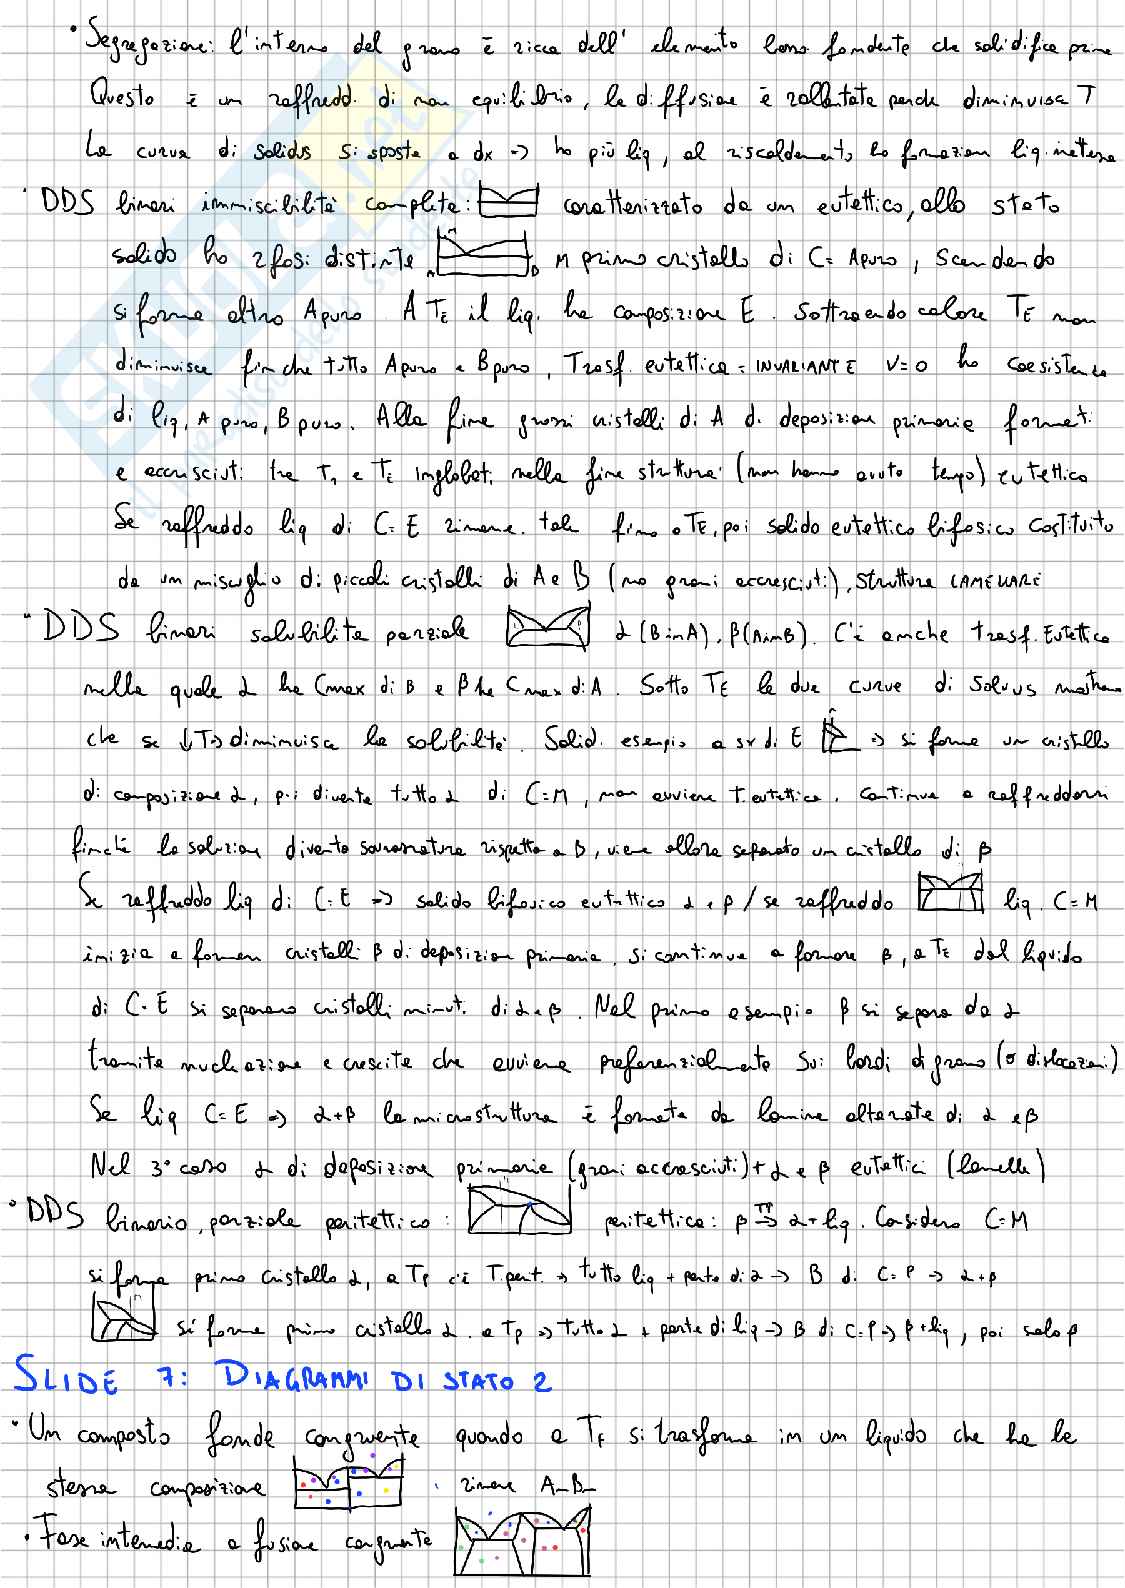 • Segregazione: l'interno del grano è ricco dell' elemento basso fondente che solidifica prima
Questo è un raffredd. di non equilibrio, la diffusione è rallentata perché diminuisce T
La curva di solidus si sposta a dx => ho più liq, al riscaldamento ho formazion liq.
• DDS binari immiscibilità completa: caratterizzato da un eutettico, allo stato
solido ho 2 fasi distinte A B M primo cristallo di C= Apuro, Scendendo
si forma altro Apuro A TE il liq. ha composizione E. Sottraendo calore TE non
diminuisce finche tutto Apuro e Bpuro, Trasf. eutettica = INVARIANTE V=0 ho coesistenza
di liq, A puro, B puro. Alla fine grossi cristalli di A di deposizion primaria formati
e accresciuti tra T1 e TE inglobati nella fine struttura (non hanno avuto tempo) eutettica
Se raffreddo liq di C=E rimane tale fino a TE, poi solido eutettico bifasico costituito
da un miscuglio di piccoli cristalli di A e B (no grani accresciuti), struttura LAMELLARE
• DDS binari solubilità parziale α (B in A), β (A in B). C'è anche trasf. Eutettica
nella quale α ha Cmax di B e β ha Cmax di A. Sotto TE le due curve di Solvus mostrano
che se ↓T => diminuisce la solubilità. Solid. esempio a sx di E => si forma un cristallo
di composizione α, poi diventa tutto α di C=M, non avviene T. eutettica. Continua a raffreddarsi
finché la soluzion diventa sovrassatura rispetto a B, viene allora separato un cristallo di β
Se raffreddo liq di C=E => solido bifasico eutettico α e β / se raffreddo liq. C=M
inizia a formare cristalli β di deposizion primaria, si continua a formare β, a TE dal liquido
di C=E si separano cristalli minuti di α e β. Nel primo esempio β si separa da α
tramite nucleazione e crescita che avviene preferenzialmente sui bordi di grano (o dislocazioni)
Se liq C=E => α+β la microstruttura è formata da lamine alternate di α e β
Nel 3° caso α di deposizione primaria (grani accresciuti) + α e β eutettici (lamelle)
• DDS binario, parziale peritettico: peritettica: β TP => α + liq. Considero C=M
si forma primo cristallo α, a TP c'è T. perit. => tutto liq + parte di α -> B di C=P => α+β
si forma primo cristallo α. a TP => tutto α + parte di liq -> B di C=P => β+liq, poi solo β
SLIDE 7: DIAGRAMMI DI STATO 2
• Un composto fonde congruente quando a TF si trasforma in un liquido che ha la
stessa composizione rimane A_B_
• Fase intermedia a fusione congruente